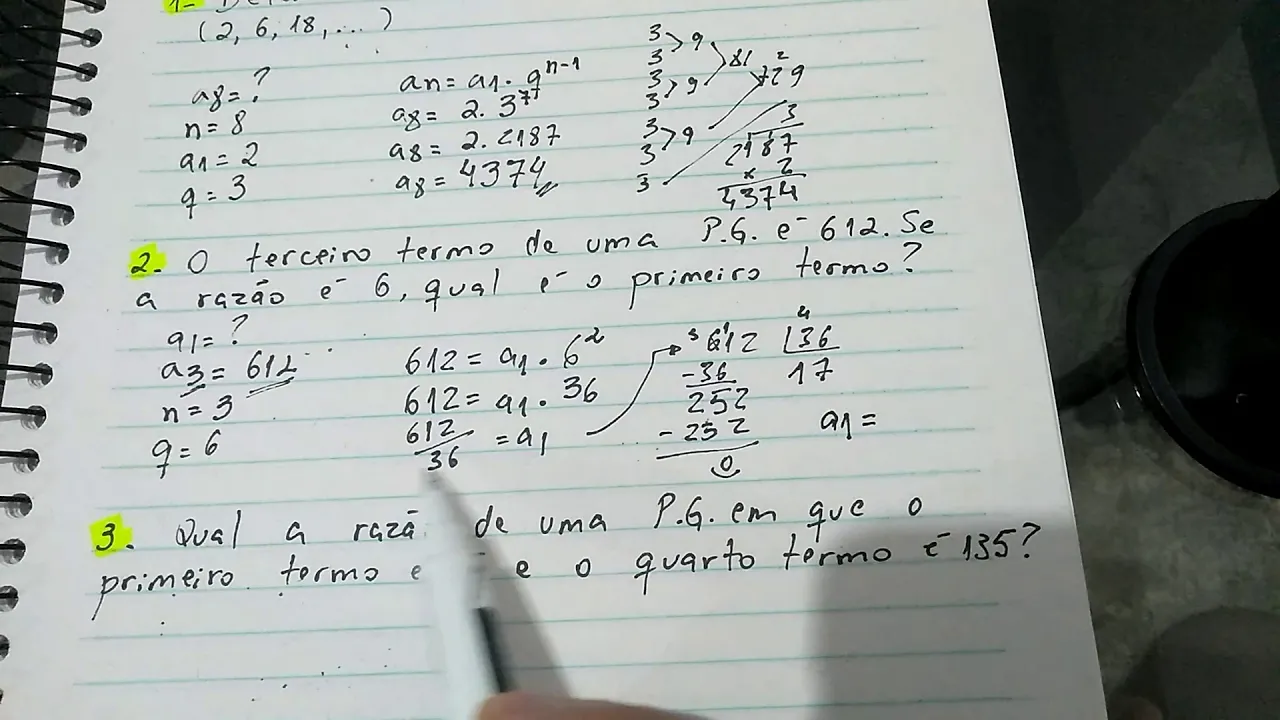 1-
(2, 6, 18, ... )
a8 = ?
n = 8
a1 = 2
q = 3
an = a1 . q^n-1
a8 = 2. 3^7
a8 = 2. 2187
a8 = 4374
3
3 > 9
3
3 > 9
81
3
3 > 9
3
2
729
3
2187
x 2
4374
2. O terceiro termo de uma P.G. é 612. Se
a razão é 6, qual é o primeiro termo?
a1 = ?
a3 = 612
n = 3
q = 6
612 = a1 . 6²
612 = a1 . 36
612/36 = a1
612 36
-36 17
252
- 252
0
4
a1 =
3. Qual a razã de uma P.G. em que o
primeiro termo e o quarto termo é 135?